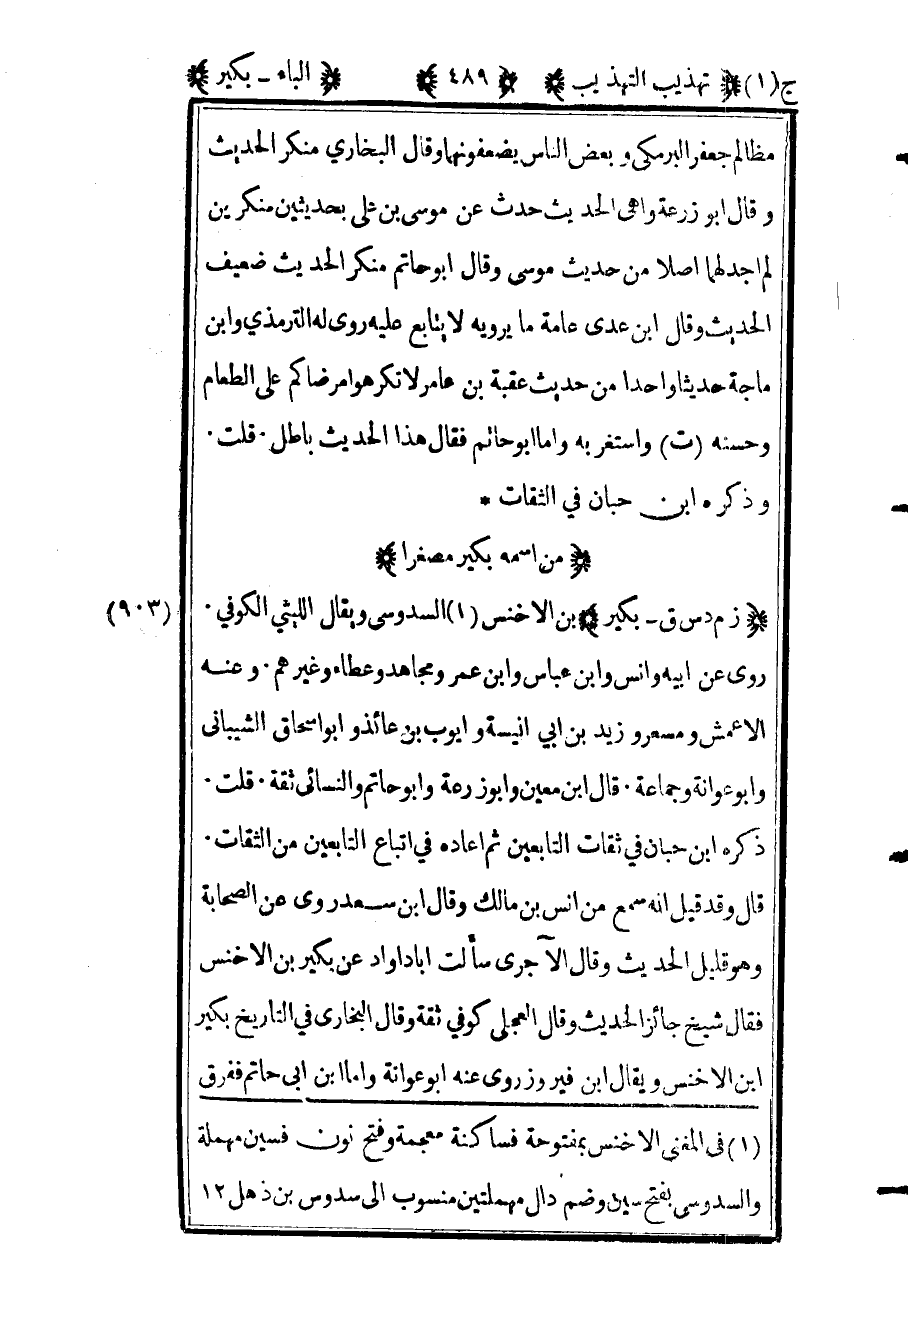 ج(١) ﴿ تهذيب التهذيب ﴾ ﴿ ٤٨٩ ﴾ ﴿ الباء - بكير ﴾
مظالم جعفر البرمكى و بعض الناس يضعفونها وقال البخاري منكر الحديث
و قال ابو زرعة واهى الحديث حدث عن موسى بن على بحديثين منكرين
لم اجد لهما اصلا من حديث موسى وقال ابو حاتم منكر الحديث ضعيف
الحديث وقال ابن عدى عامة ما يرويه لا يتابع عليه روى له الترمذي وابن
ماجة حديثا واحدا من حديث عقبة بن عامر لا تكرهوا مرضاكم على الطعام
وحسنه (ت) واستغر به واما ابو حاتم فقال هذا الحديث باطل · قلت ·
و ذكره ابن حبان في الثقات *
﴿ من اسمه بكير مصغرا ﴾
﴿ ز م د س ق - بكير ﴾ بن الاخنس (١) السدوسى ويقال الليثي الكوفي · (٩٠٣)
روى عن ابيه وانس وابن عباس وابن عمر ومجاهد وعطاء وغيرهم · وعنه
الاعمش و مسعر و زيد بن ابي انيسة و ايوب بن عائذ و ابو اسحاق الشيبانى
وابو عوانة وجماعة · قال ابن معين وابو زرعة وابو حاتم والنسائى ثقة · قلت ·
ذكره ابن حبان في ثقات التابعين ثم اعاده في اتباع التابعين من الثقات ·
قال وقد قيل انه سمع من انس بن مالك وقال ابن سعد روى عن الصحابة
وهو قليل الحديث وقال الآجرى سألت ابا داواد عن بكير بن الاخنس
فقال شيخ جائز الحديث وقال العجلى كوفي ثقة وقال البخارى في التاريخ بكير
ابن الاخنس ويقال ابن فيروز روى عنه ابو عوانة واما ابن ابى حاتم ففرق
(١) فى المغنى الاخنس بمفتوحة فساكنة معجمة وفتح نون فسين مهملة
والسدوسى بفتح سين وضم دال مهملتين منسوب الى سدوس بن ذهل ١٢